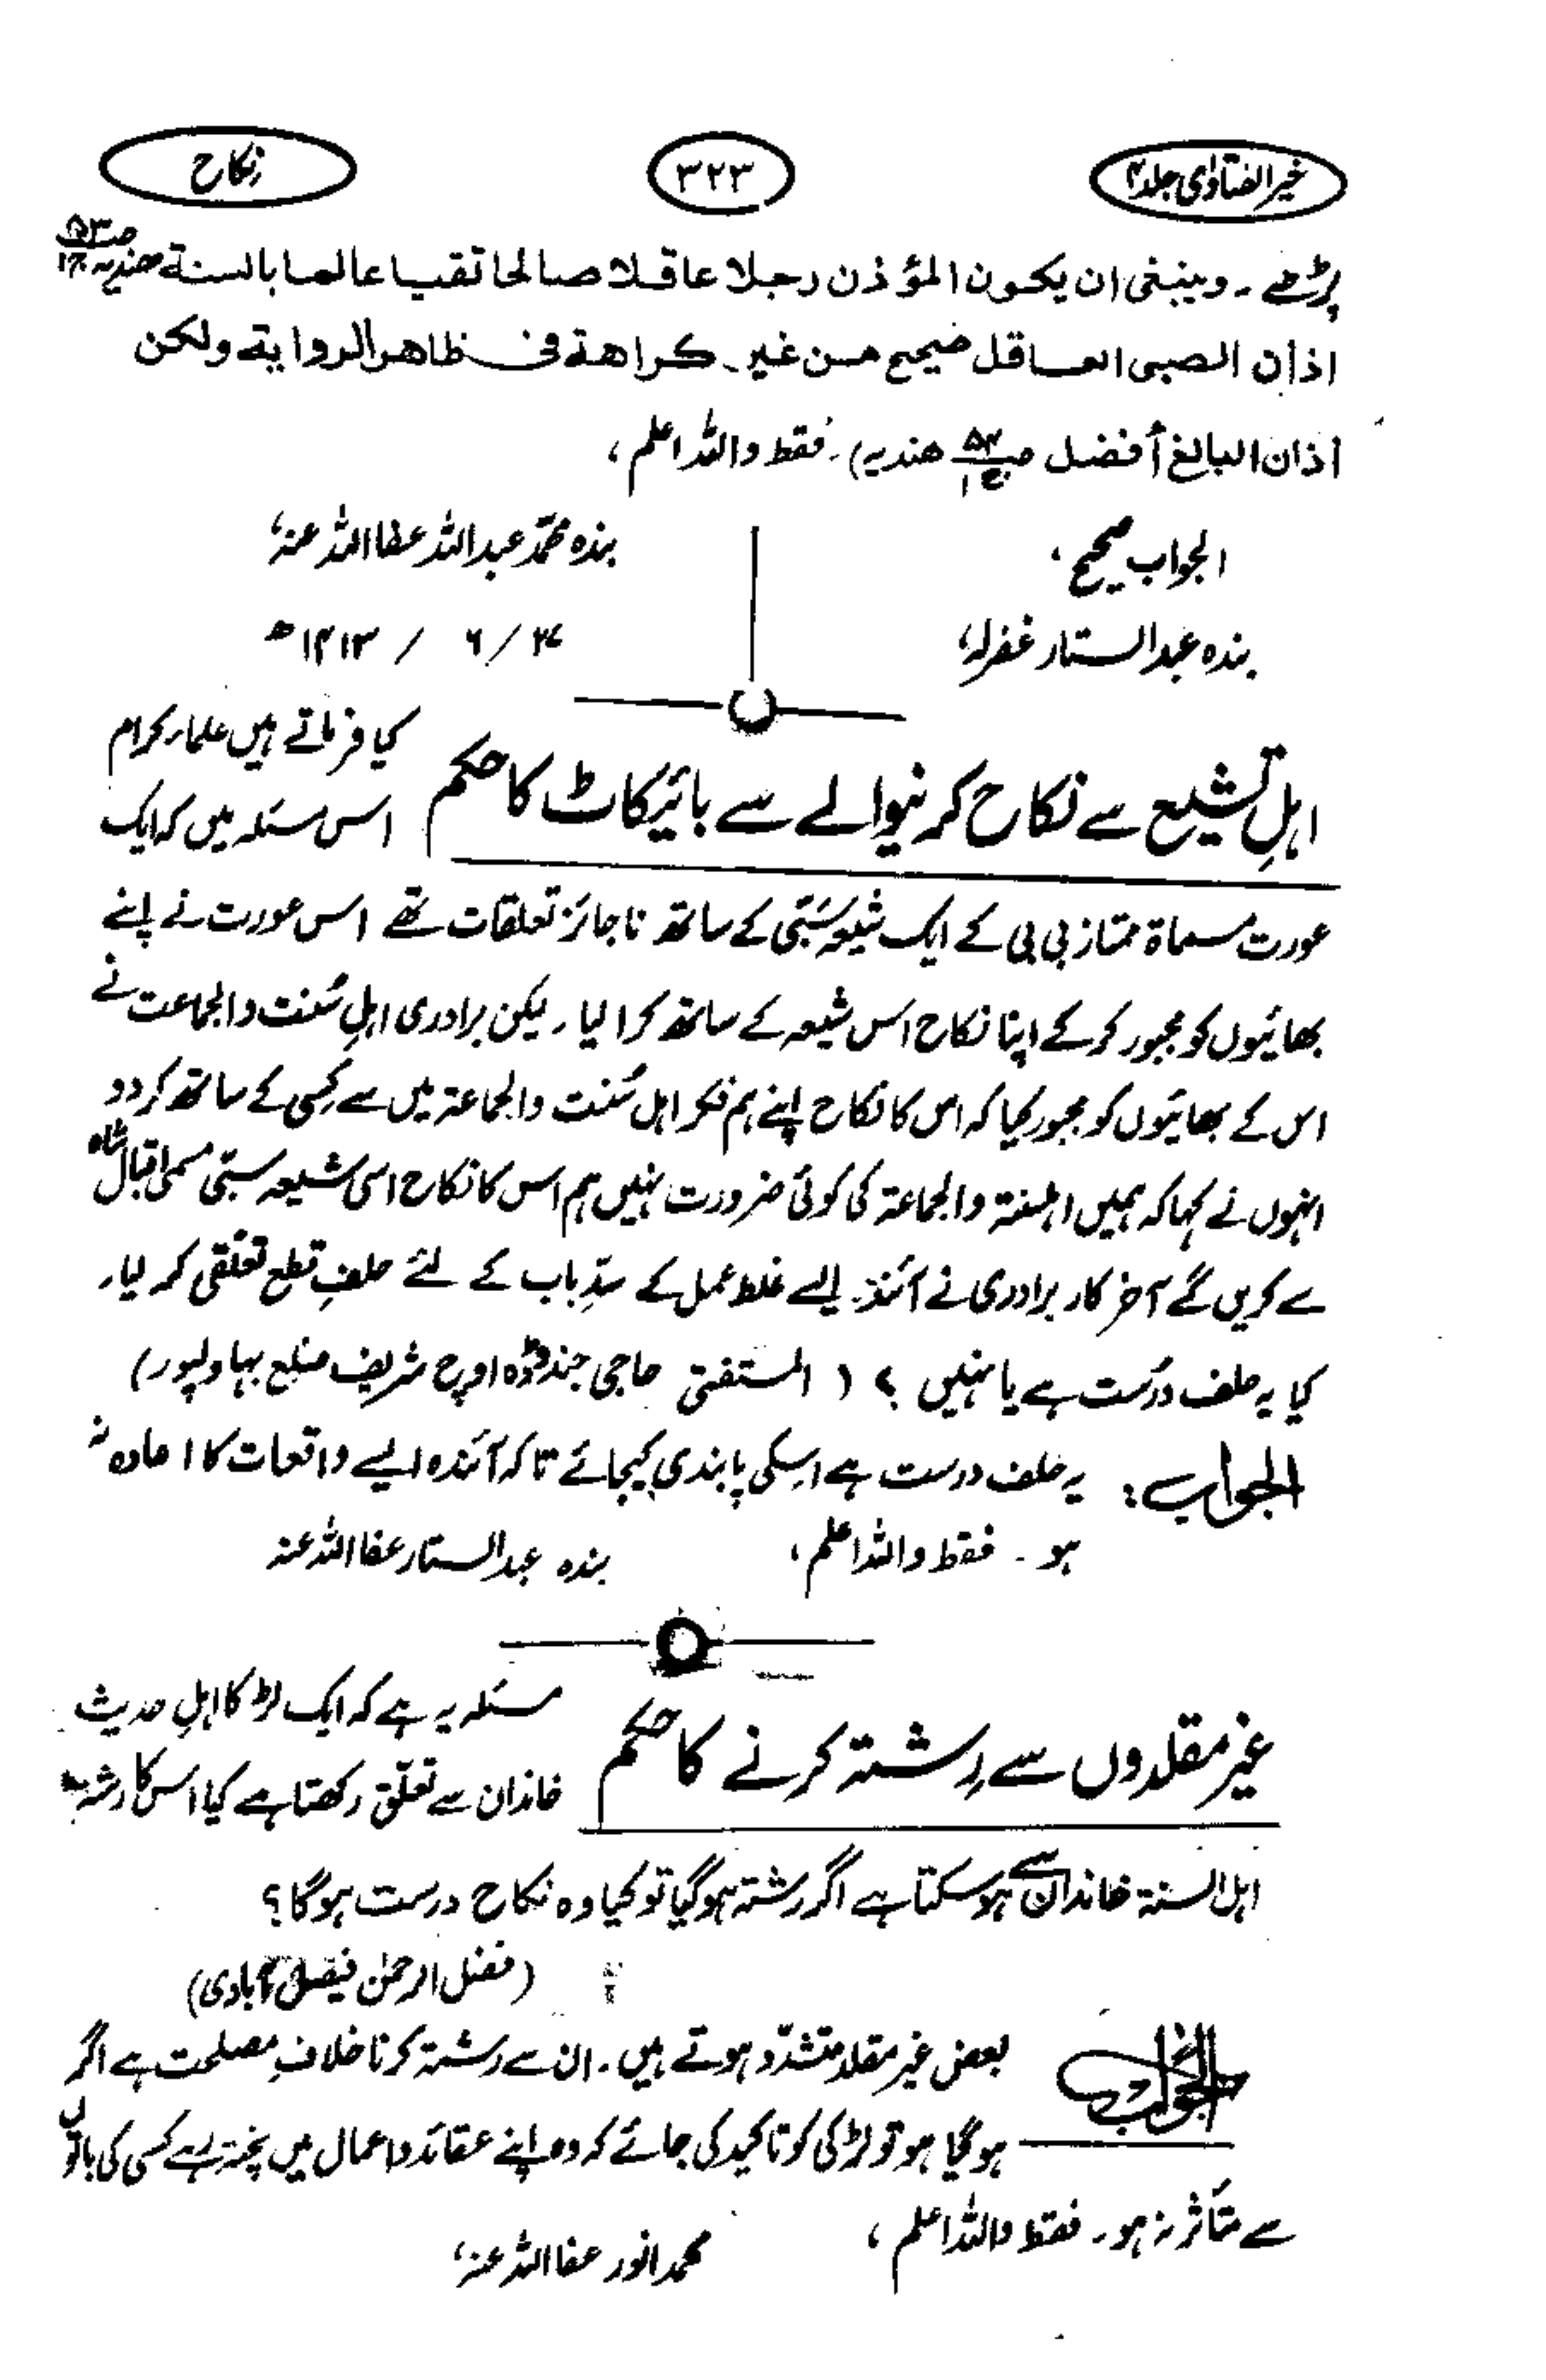 خیر الفتاوٰی جلد ۴
۳۲۳
نکاح
پڑھے۔ وینبغی ان یکون المؤذن رجلا عاقلا صالحا تقیا عالما بالسنة هندیہ ص۵۳ ج۱
اذان الصبی العاقل صحیح من غیر کراهة فی ظاهر الروایة ولکن
اذان البالغ أفضل ص۵۴ ج۱ هندیہ)۔ فقط واللہ اعلم،
الجواب صحیح،
بندہ عبدالستار غفرلہ،
بندہ محمد عبداللہ عفا اللہ عنہ،
/ ۶ / ۱۴۱۳ھ
اہلِ تشیع سے نکاح کرنیوالے سے بائیکاٹ کا حکم
کیا فرماتے ہیں علماء کرام
اس مسئلہ میں کہ ایک
عورت مسماۃ ممتاز بی بی کے ایک شیعہ سَبّی کے ساتھ ناجائز تعلقات تھے اس عورت نے اپنے
بھائیوں کو مجبور کرکے اپنا نکاح اس شیعہ کے ساتھ کرا لیا۔ لیکن برادری اہلِ سُنت والجماعت نے
اس کے بھائیوں کو مجبور کیا کہ اس کا نکاح اپنے ہم فکر اہل سُنت والجماعۃ میں سے کسی کے ساتھ کر دو
انہوں نے کہا کہ ہمیں اہلسنۃ والجماعۃ کی کوئی ضرورت نہیں ہم اس کا نکاح اسی شیعہ سبّی مسمی اقبال شاہ
سے کریں گے آخر کار برادری نے آئندہ ایسے غلط عمل کے سدِّ باب کے لئے حلفِ قطع تعلقی کر لیا۔
کیا یہ حلف درُست ہے یا نہیں ؟ (المستفتی حاجی جندوڈہ اوچ شریف ضلع بہاولپور)
الجواب: یہ حلف درست ہے اسکی پابندی کیجائے تاکہ آئندہ ایسے واقعات کا اعادہ نہ
ہو۔ فقط واللہ اعلم، بندہ عبدالستار عفا اللہ عنہ
غیر مقلدوں سے رشتہ کرنے کا حکم
مسئلہ یہ ہے کہ ایک لڑکا اہلِ حدیث
خاندان سے تعلّق رکھتا ہے کیا اس کا رشتہ
اہل السنۃ خاندان سے ہوسکتا ہے اگر رشتہ ہوگیا تو کیا وہ نکاح درست ہوگا؟
(فضل الرحمٰن فیصل آبادی)
الجواب
بعض غیر مقلد متشدّد ہوتے ہیں۔ ان سے رشتہ کرنا خلافِ مصلحت ہے اگر
ہوگیا ہو تو لڑکی کو تاکید کی جائے کہ وہ اپنے عقائد و اعمال میں پختہ رہے کسی کی باتوں
سے متأثر نہ ہو۔ فقط واللہ اعلم،
محمد انور عفا اللہ عنہ،